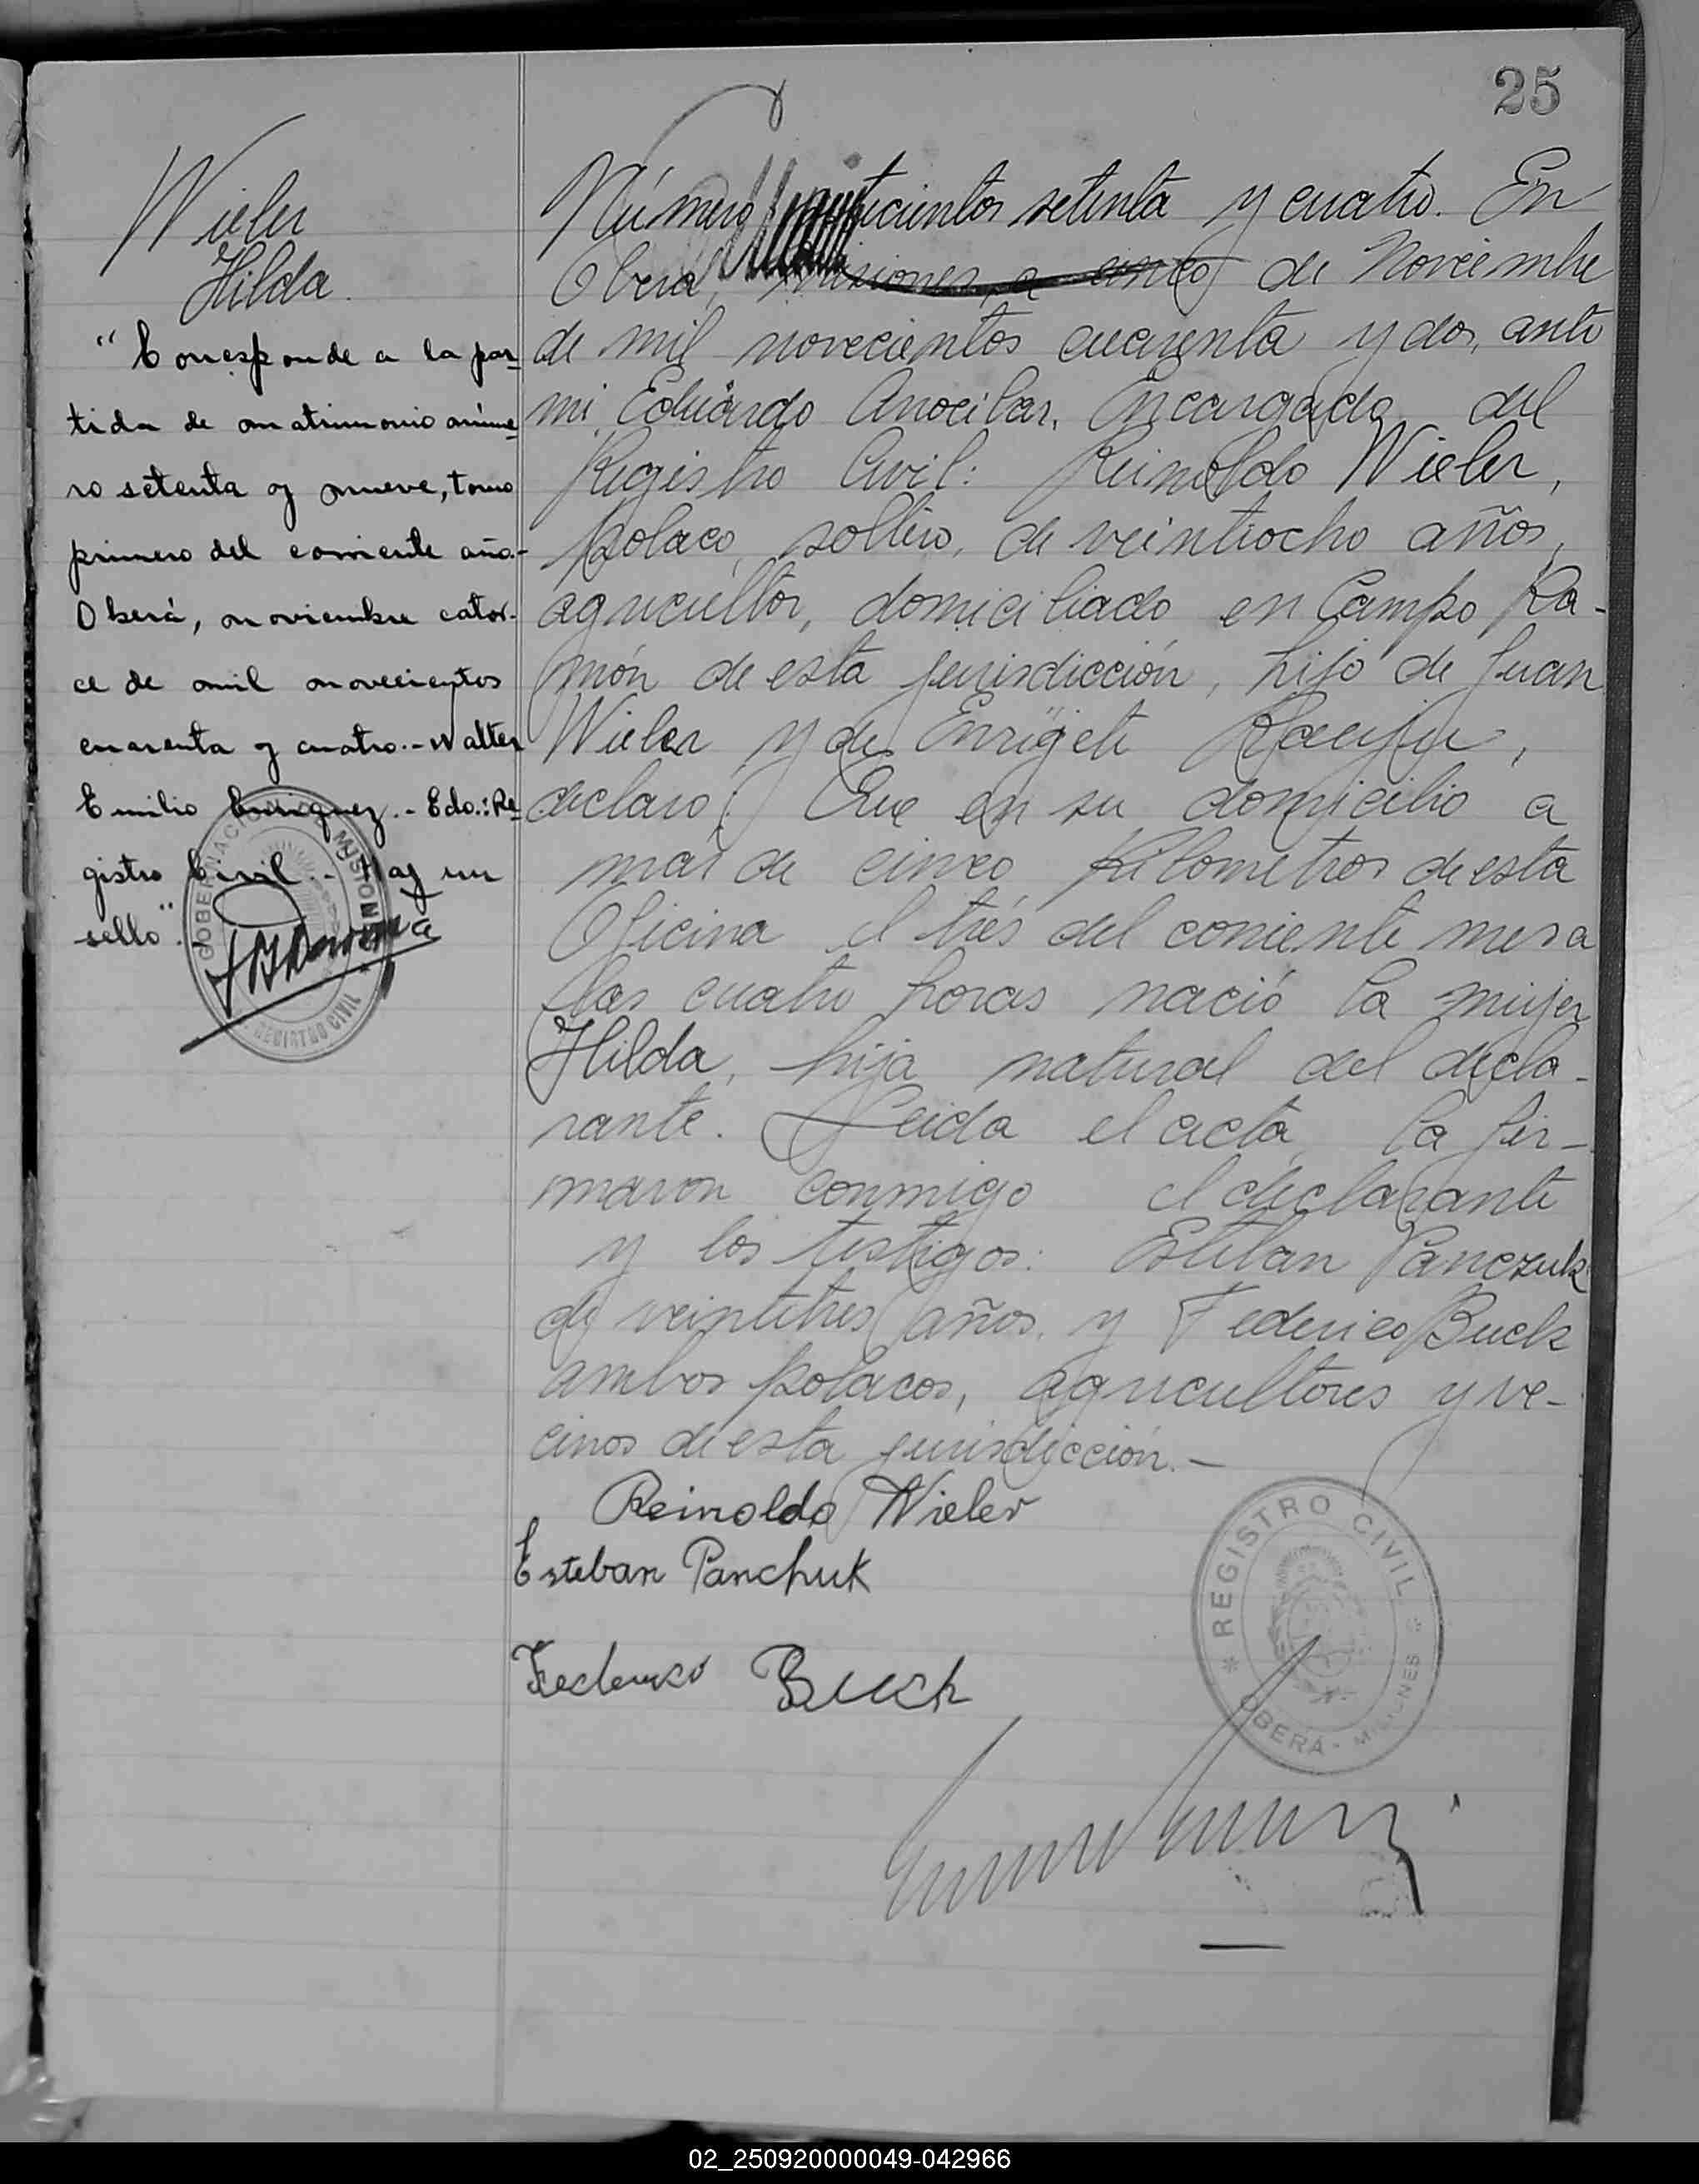 25
Wieler
Hilda.
"Corresponde a la par-
tida de matrimonio núme-
ro setenta y nueve, tomo
primero del corriente año.-
Oberá, noviembre cator-
ce de mil novecientos
cuarenta y cuatro.- Walter
Emilio Enriquez.- Edo.: Re-
gistro Civil.- Hay un
sello".
MISIONES
REGISTRO CIVIL
Número setenta y cuatro. En
Oberá, Misiones, a cinco de Noviembre
de mil novecientos cuarenta y dos, ante
mi, Eduardo Anocibar, Encargado del
Registro Civil: Reinoldo Wieler,
polaco, soltero, de veintiocho años,
agricultor, domiciliado en Campo Ra-
món de esta jurisdicción, hijo de Juan
Wieler y de,
declaró: Que en su domicilio a
más de cinco kilometros de esta
Oficina el tres del corriente mes a
las cuatro horas nació la mujer
Hilda, hija natural del decla-
rante. Leida el acta, la fir-
maron conmigo el declarante
y los testigos: Esteban Panczuk
de veintitres años, y Federico Buck
ambos polacos, agricultores y ve-
cinos de esta jurisdicción.-
Reinoldo Wieler
Esteban Panchuk
Federico Buck
REGISTRO CIVIL
OBERÁ - MISIONES
02_250920000049-042966